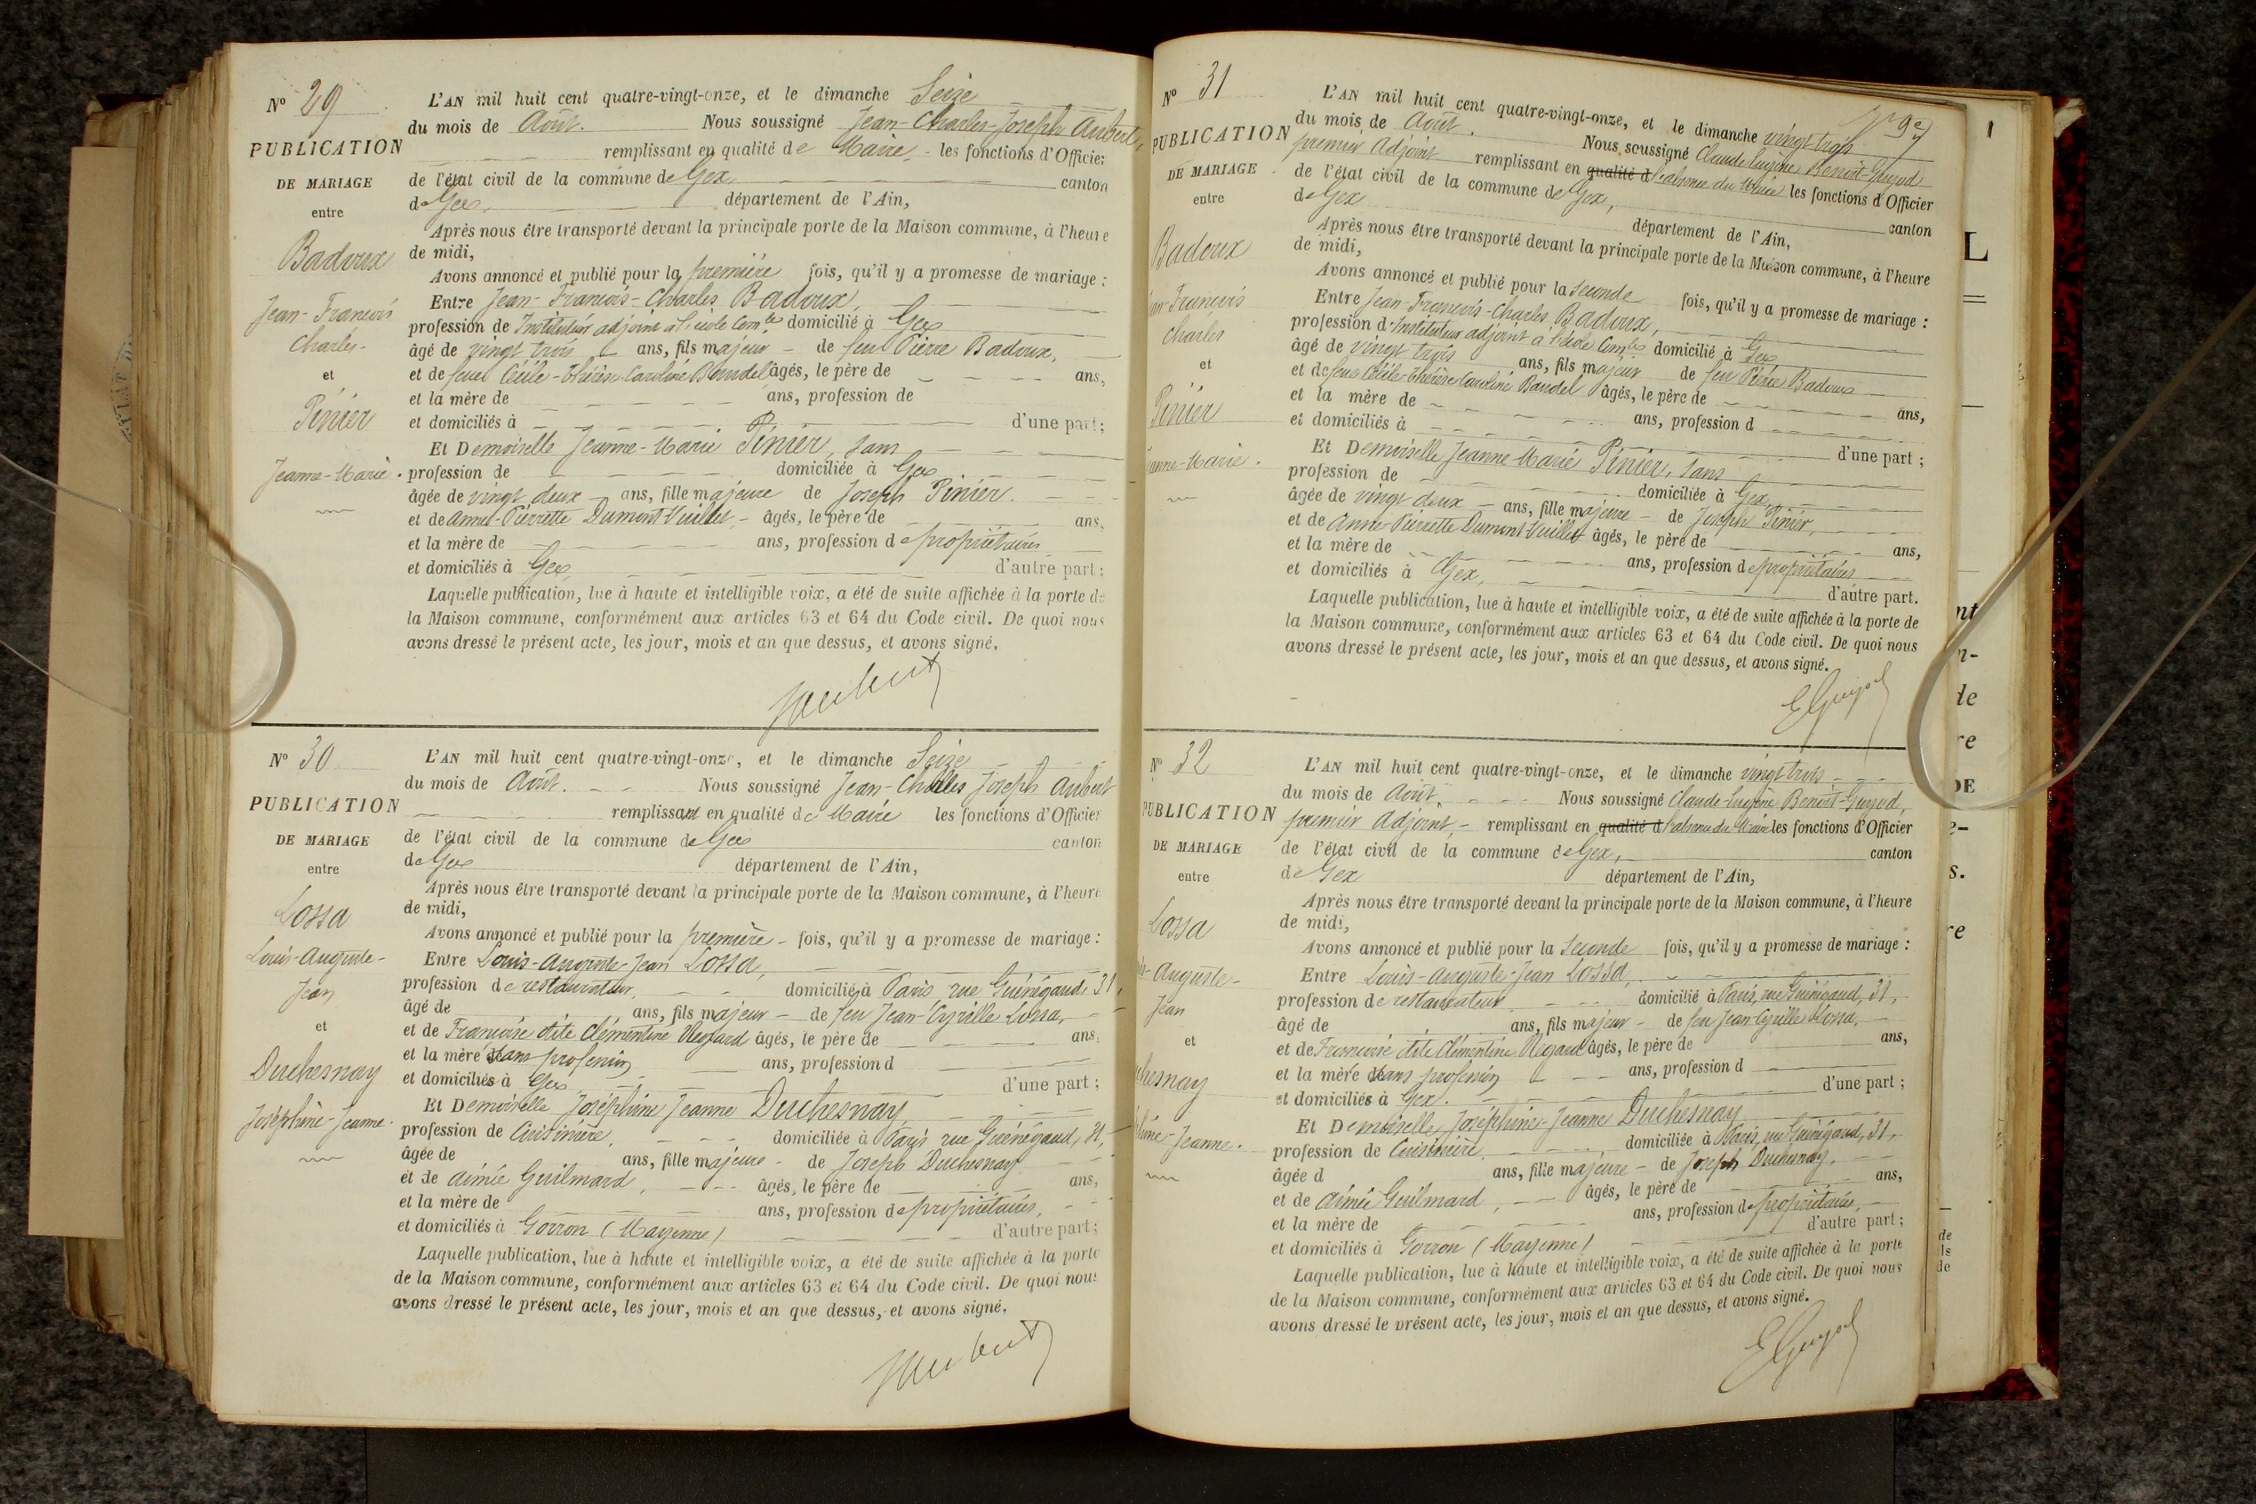 N° 29
PUBLICATION
DE MARIAGE
entre
Badoux
Jean-François
Charles-
et
Pinier
Jeanne-Marie.
L'AN mil huit cent quatre-vingt-onze, et le dimanche Seize
du mois de Août. Nous soussigné Jean-Charles-Joseph Aubert,
remplissant en qualité de Maire, - les fonctions d'Officier
de l'état civil de la commune de Gex canton
de Gex, département de l'Ain,
Après nous être transporté devant la principale porte de la Maison commune, à l'heure
de midi,
Avons annoncé et publié pour la première fois, qu'il y a promesse de mariage :
Entre Jean-François-Charles Badoux,
profession de Instituteur adjoint à l'école Com.le domicilié à Gex
âgé de vingt trois ans, fils majeur - de feu Pierre Badoux,
et de feue Cécile-Thérèse Caroline Baudel âgés, le père de ans,
et la mère de ans, profession de
et domiciliés à d'une part ;
Et Demoiselle Jeanne-Marie Pinier, sans
profession de domiciliée à Gex
âgée de vingt deux ans, fille majeure de Joseph Pinier.
et de Anne-Pierrette Dumont-Vuillet, - âgés, le père de ans,
et la mère de ans, profession de propriétaires
et domiciliés à Gex, d'autre part ;
Laquelle publication, lue à haute et intelligible voix, a été de suite affichée à la porte de
la Maison commune, conformément aux articles 63 et 64 du Code civil. De quoi nous
avons dressé le présent acte, les jour, mois et an que dessus, et avons signé.
JAubert
N° 30
PUBLICATION
DE MARIAGE
entre
Lossa
Louis-Auguste-
Jean
et
Duchesnay
Joséphine-Jeanne.
L'AN mil huit cent quatre-vingt-onze, et le dimanche Seize
du mois de Août. Nous soussigné Jean-Charles Joseph Aubert
remplissant en qualité de Maire les fonctions d'Officier
de l'état civil de la commune de Gex canton
de Gex département de l'Ain,
Après nous être transporté devant la principale porte de la Maison commune, à l'heure
de midi,
Avons annoncé et publié pour la première - fois, qu'il y a promesse de mariage :
Entre Louis-Auguste-Jean Lossa,
profession de restaurateur, domicilié à Paris rue Guénégaud, 31,
âgé de ans, fils majeur - de feu Jean-Cyrille Lossa,
et de Françoise dite Clémentine Regard âgés, le père de ans,
et la mère sans profession ans, profession d
et domiciliés à Gex d'une part ;
Et Demoiselle Joséphine Jeanne Duchesnay
profession de Cuisinière, domiciliée à Paris rue Guénégaud, 31,
âgée de ans, fille majeure - de Joseph Duchesnay
et de Aimée Guilmard, âgés, le père de ans,
et la mère de ans, profession de propriétaires,
et domiciliés à Gorron (Mayenne) d'autre part ;
Laquelle publication, lue à haute et intelligible voix, a été de suite affichée à la porte
de la Maison commune, conformément aux articles 63 et 64 du Code civil. De quoi nous
avons dressé le présent acte, les jour, mois et an que dessus, et avons signé.
JAubert
9e
N° 31
PUBLICATION
DE MARIAGE
entre
Badoux
Jean-François
Charles
et
Pinier
Jeanne-Marie.
L'AN mil huit cent quatre-vingt-onze, et le dimanche vingt trois
du mois de Août. Nous soussigné Claude Eugène Benoit-Guyod
premier Adjoint remplissant en qualité d l'absence du Maire les fonctions d'Officier
de l'état civil de la commune de Gex, canton
de Gex département de l'Ain,
Après nous être transporté devant la principale porte de la Maison commune, à l'heure
de midi,
Avons annoncé et publié pour la seconde fois, qu'il y a promesse de mariage :
Entre Jean-François-Charles Badoux,
profession d'Instituteur adjoint à l'école Com.le domicilié à Gex
âgé de vingt trois ans, fils majeur de feu Pierre Badoux
et de feue Cécile Thérèse Caroline Baudel âgés, le père de ans,
et la mère de ans, profession d
et domiciliés à d'une part ;
Et Demoiselle Jeanne Marie Pinier, sans
profession de domiciliée à Gex,
âgée de vingt deux - ans, fille majeure - de Joseph Pinier,
et de Anne Pierrette Dumont Vuillet âgés, le père de ans,
et la mère de ans, profession de propriétaires
et domiciliés à Gex, d'autre part.
Laquelle publication, lue à haute et intelligible voix, a été de suite affichée à la porte de
la Maison commune, conformément aux articles 63 et 64 du Code civil. De quoi nous
avons dressé le présent acte, les jour, mois et an que dessus, et avons signé.
EGuyod
N° 32
PUBLICATION
DE MARIAGE
entre
Lossa
-Auguste-
Jean
et
chesnay
-Jeanne.
L'AN mil huit cent quatre-vingt-onze, et le dimanche vingt trois
du mois de Août. Nous soussigné Claude-Eugène Benoit-Guyod,
premier Adjoint, - remplissant en qualité d l'absence du Maire les fonctions d'Officier
de l'état civil de la commune de Gex, canton
de Gex département de l'Ain,
Après nous être transporté devant la principale porte de la Maison commune, à l'heure
de midi,
Avons annoncé et publié pour la seconde fois, qu'il y a promesse de mariage :
Entre Louis-Auguste-Jean Lossa,
profession de restaurateur domicilié à Paris, rue Guénégaud, 31,
âgé de ans, fils majeur - de feu Jean-Cyrille Lossa,
et de Françoise dite Clémentine Regard âgés, le père de ans,
et la mère sans profession ans, profession d
et domiciliés à Gex. d'une part ;
Et Demoiselle Joséphine-Jeanne Duchesnay
profession de Cuisinière, domiciliée à Paris, rue Guénégaud, 31,
âgée d ans, fille majeure - de Joseph Duchesnay,
et de Aimée Guilmard, âgés, le père de ans,
et la mère de ans, profession de propriétaires,
et domiciliés à Gorron (Mayenne) d'autre part ;
Laquelle publication, lue à haute et intelligible voix, a été de suite affichée à la porte
de la Maison commune, conformément aux articles 63 et 64 du Code civil. De quoi nous
avons dressé le présent acte, les jour, mois et an que dessus, et avons signé.
EGuyod